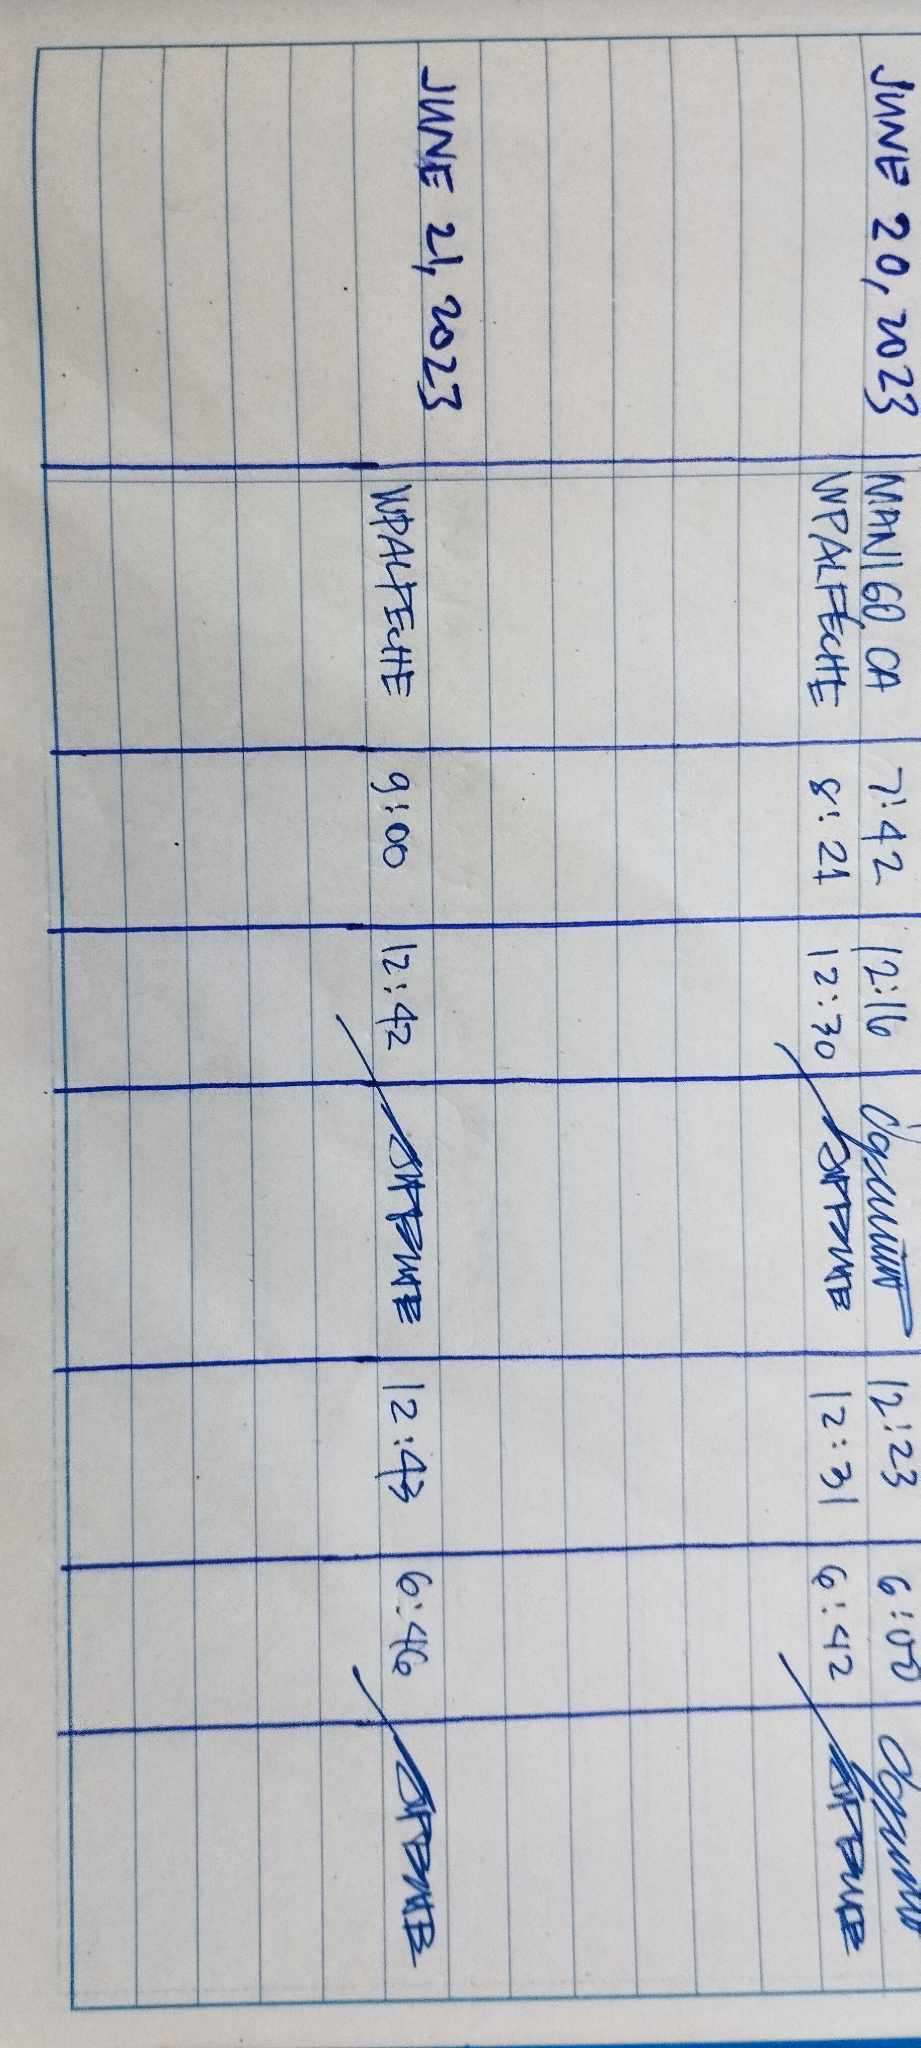 JUNE 20, 2023
MANIGO, CA 7:42 12:16 12:23 6:00
WPALPECHE 8:21 12:30 12:31 6:42
JUNE 21, 2023
WPALPECHE 9:00 12:42 12:43 6:46